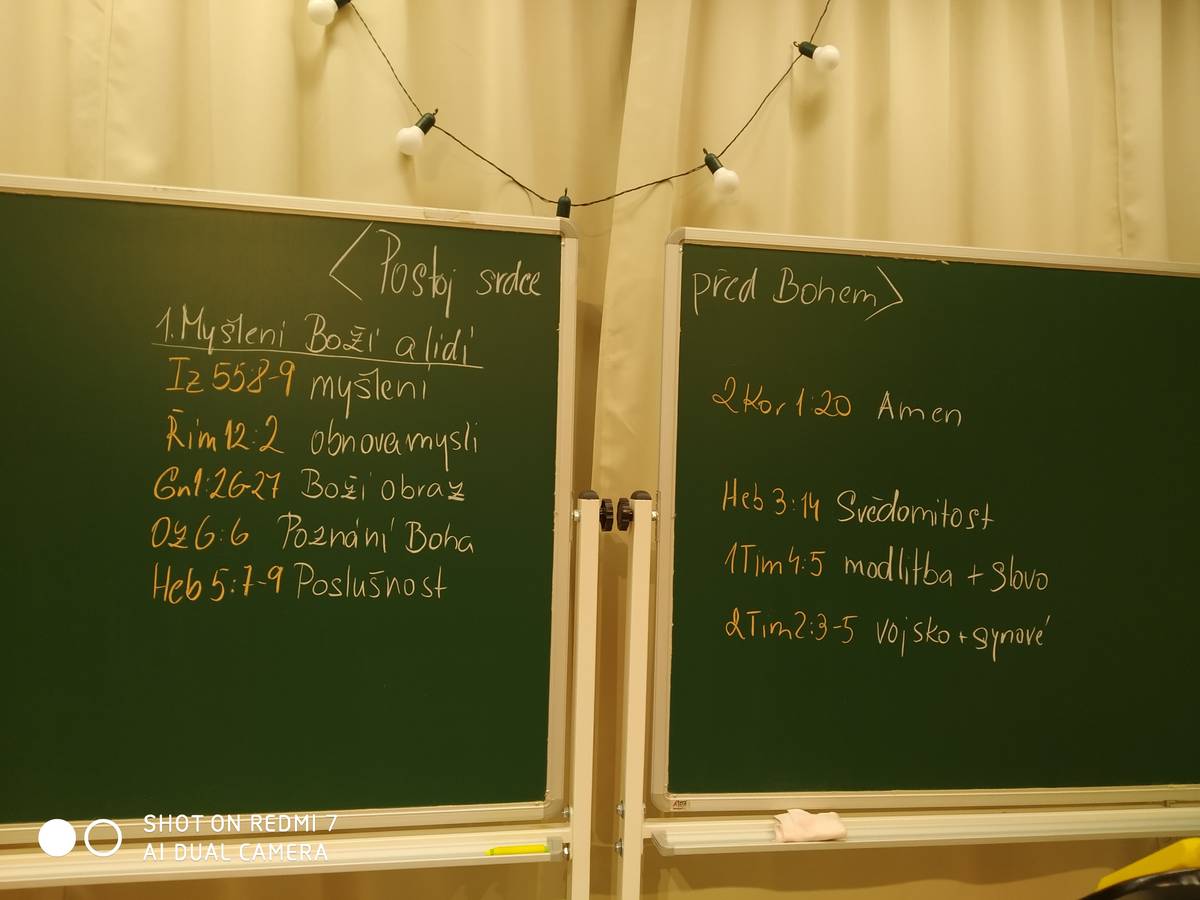 <Postoj srdce před Bohem>
1. Myšlení Boží a lidí
Iz 55:8-9 myšlení
Řím 12:2 obnova mysli
Gn1:26-27 Boží obraz
Oz 6:6 Poznání Boha
Heb 5:7-9 Poslušnost
2 Kor 1:20 Amen
Heb 3:14 Svědomitost
1Tim 4:5 modlitba + slovo
2Tim 2:3-5 vojsko + synové
SHOT ON REDMI 7
AI DUAL CAMERA